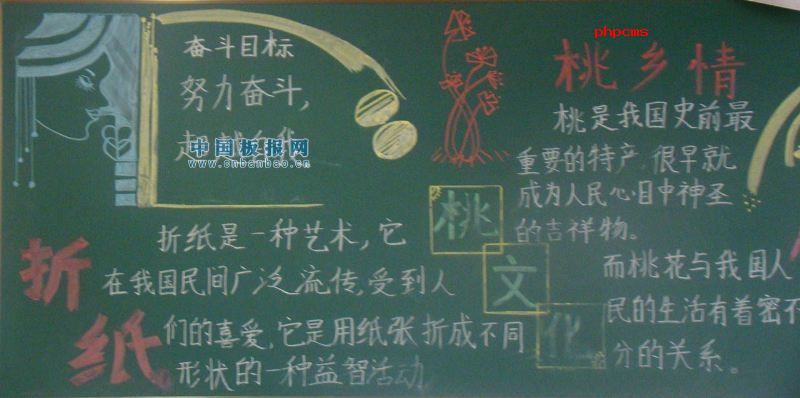 奋斗目标
努力奋斗,
超越自我
中国板报网
www.cnbanbao.cn
折纸
折纸是一种艺术,它
在我国民间广泛流传,受到人
们的喜爱,它是用纸张折成不同
形状的一种益智活动
phpcms
桃乡情
桃是我国史前最
重要的特产,很早就
成为人民心目中神圣
的吉祥物。
桃
文
化
而桃花与我国人
民的生活有着密不
分的关系。